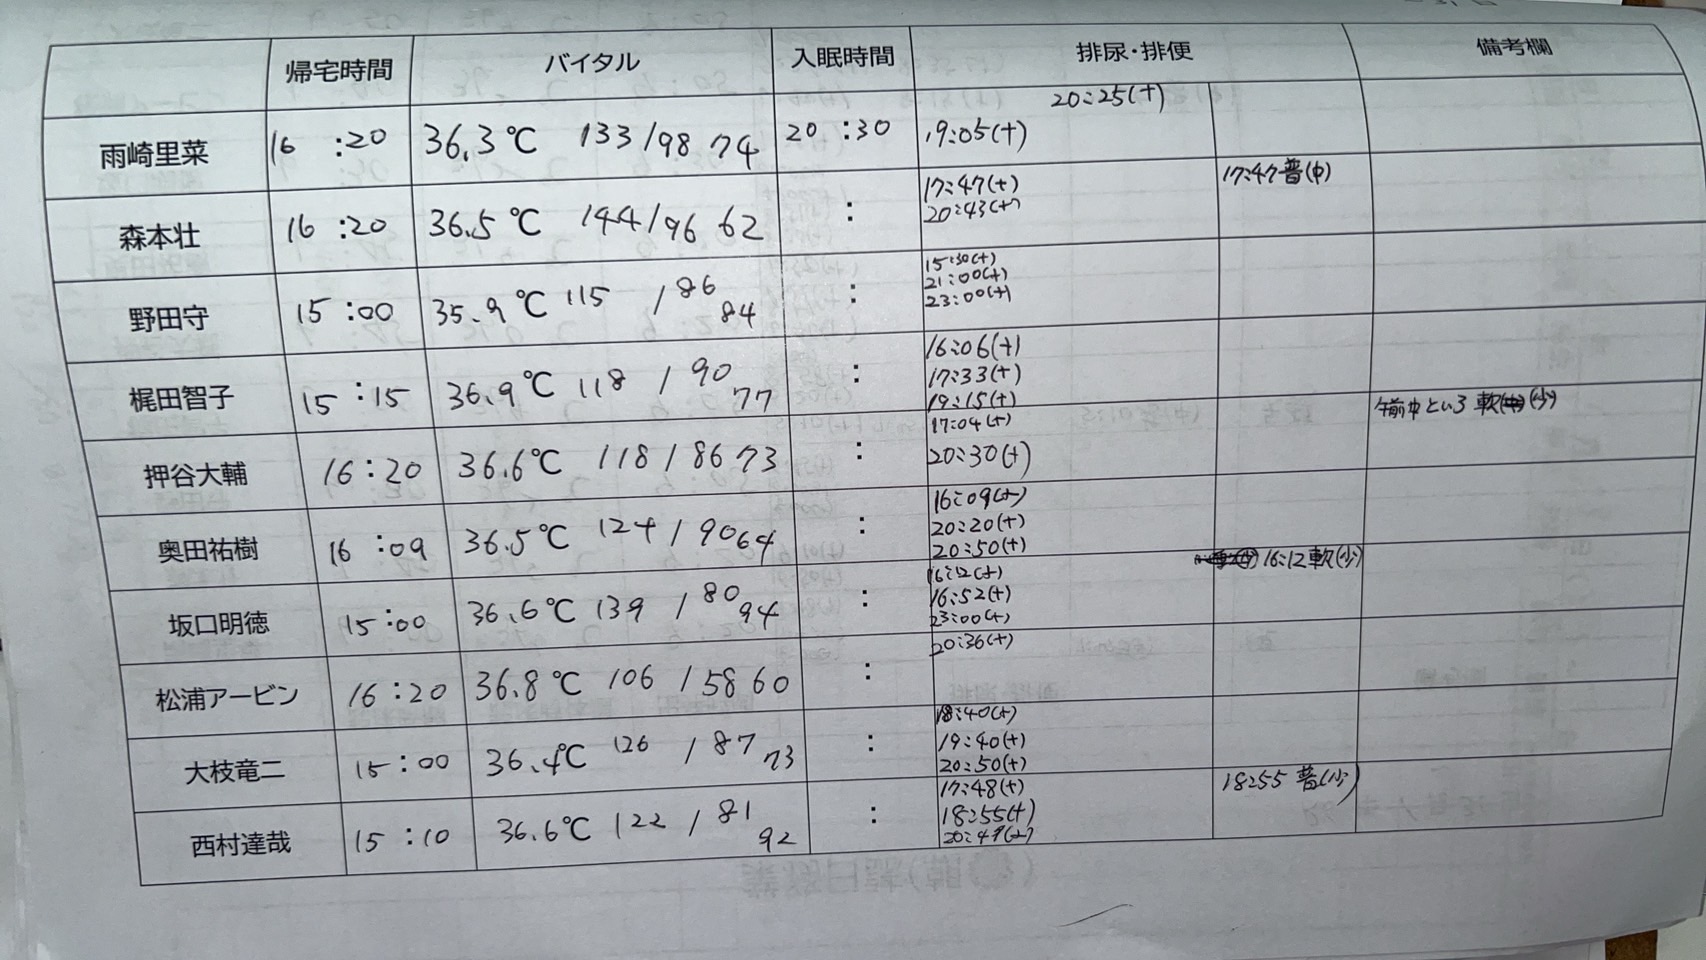 帰宅時間 バイタル 入眠時間 排尿・排便 備考欄
20:25(+)
雨崎里菜 16:20 36.3℃ 133/98 74 20:30 19:05(+)
17:47(+) 17:47普(中)
森本壮 16:20 36.5℃ 144/96 62 : 20:43(+)
15:30(+)
21:00(+)
野田守 15:00 35.9℃ 115/86 84 : 23:00(+)
16:06(+)
17:33(+)
梶田智子 15:15 36.9℃ 118/90 77 : 19:15(+)
17:04(+) 午前中といろ 軟(少)
押谷大輔 16:20 36.6℃ 118/86 73 : 20:30(+)
16:09(+)
20:20(+)
奥田祐樹 16:09 36.5℃ 124/90 64 : 20:50(+)
16:12(+) 16:12軟(少)
16:52(+)
坂口明徳 15:00 36.6℃ 139/80 94 : 23:00(+)
20:36(+)
松浦アービン 16:20 36.8℃ 106/58 60 :
18:40(+)
19:40(+)
大枝竜二 15:00 36.4℃ 126/87 73 : 20:50(+)
17:48(+) 18:55 普(少)
18:55(+)
西村達哉 15:10 36.6℃ 122/81 92 :